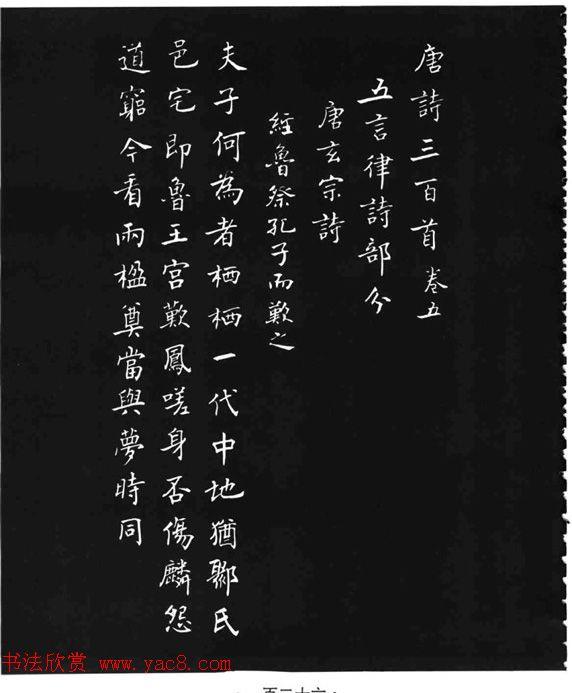 唐詩三百首 卷五
五言律詩部分
唐玄宗詩
經魯祭孔子而歎之
夫子何為者栖栖一代中地猶鄹氏
邑宅即魯王宮歎鳳嗟身否傷麟怨
道窮今看兩楹奠當與夢時同
书法欣赏 www.yac8.com